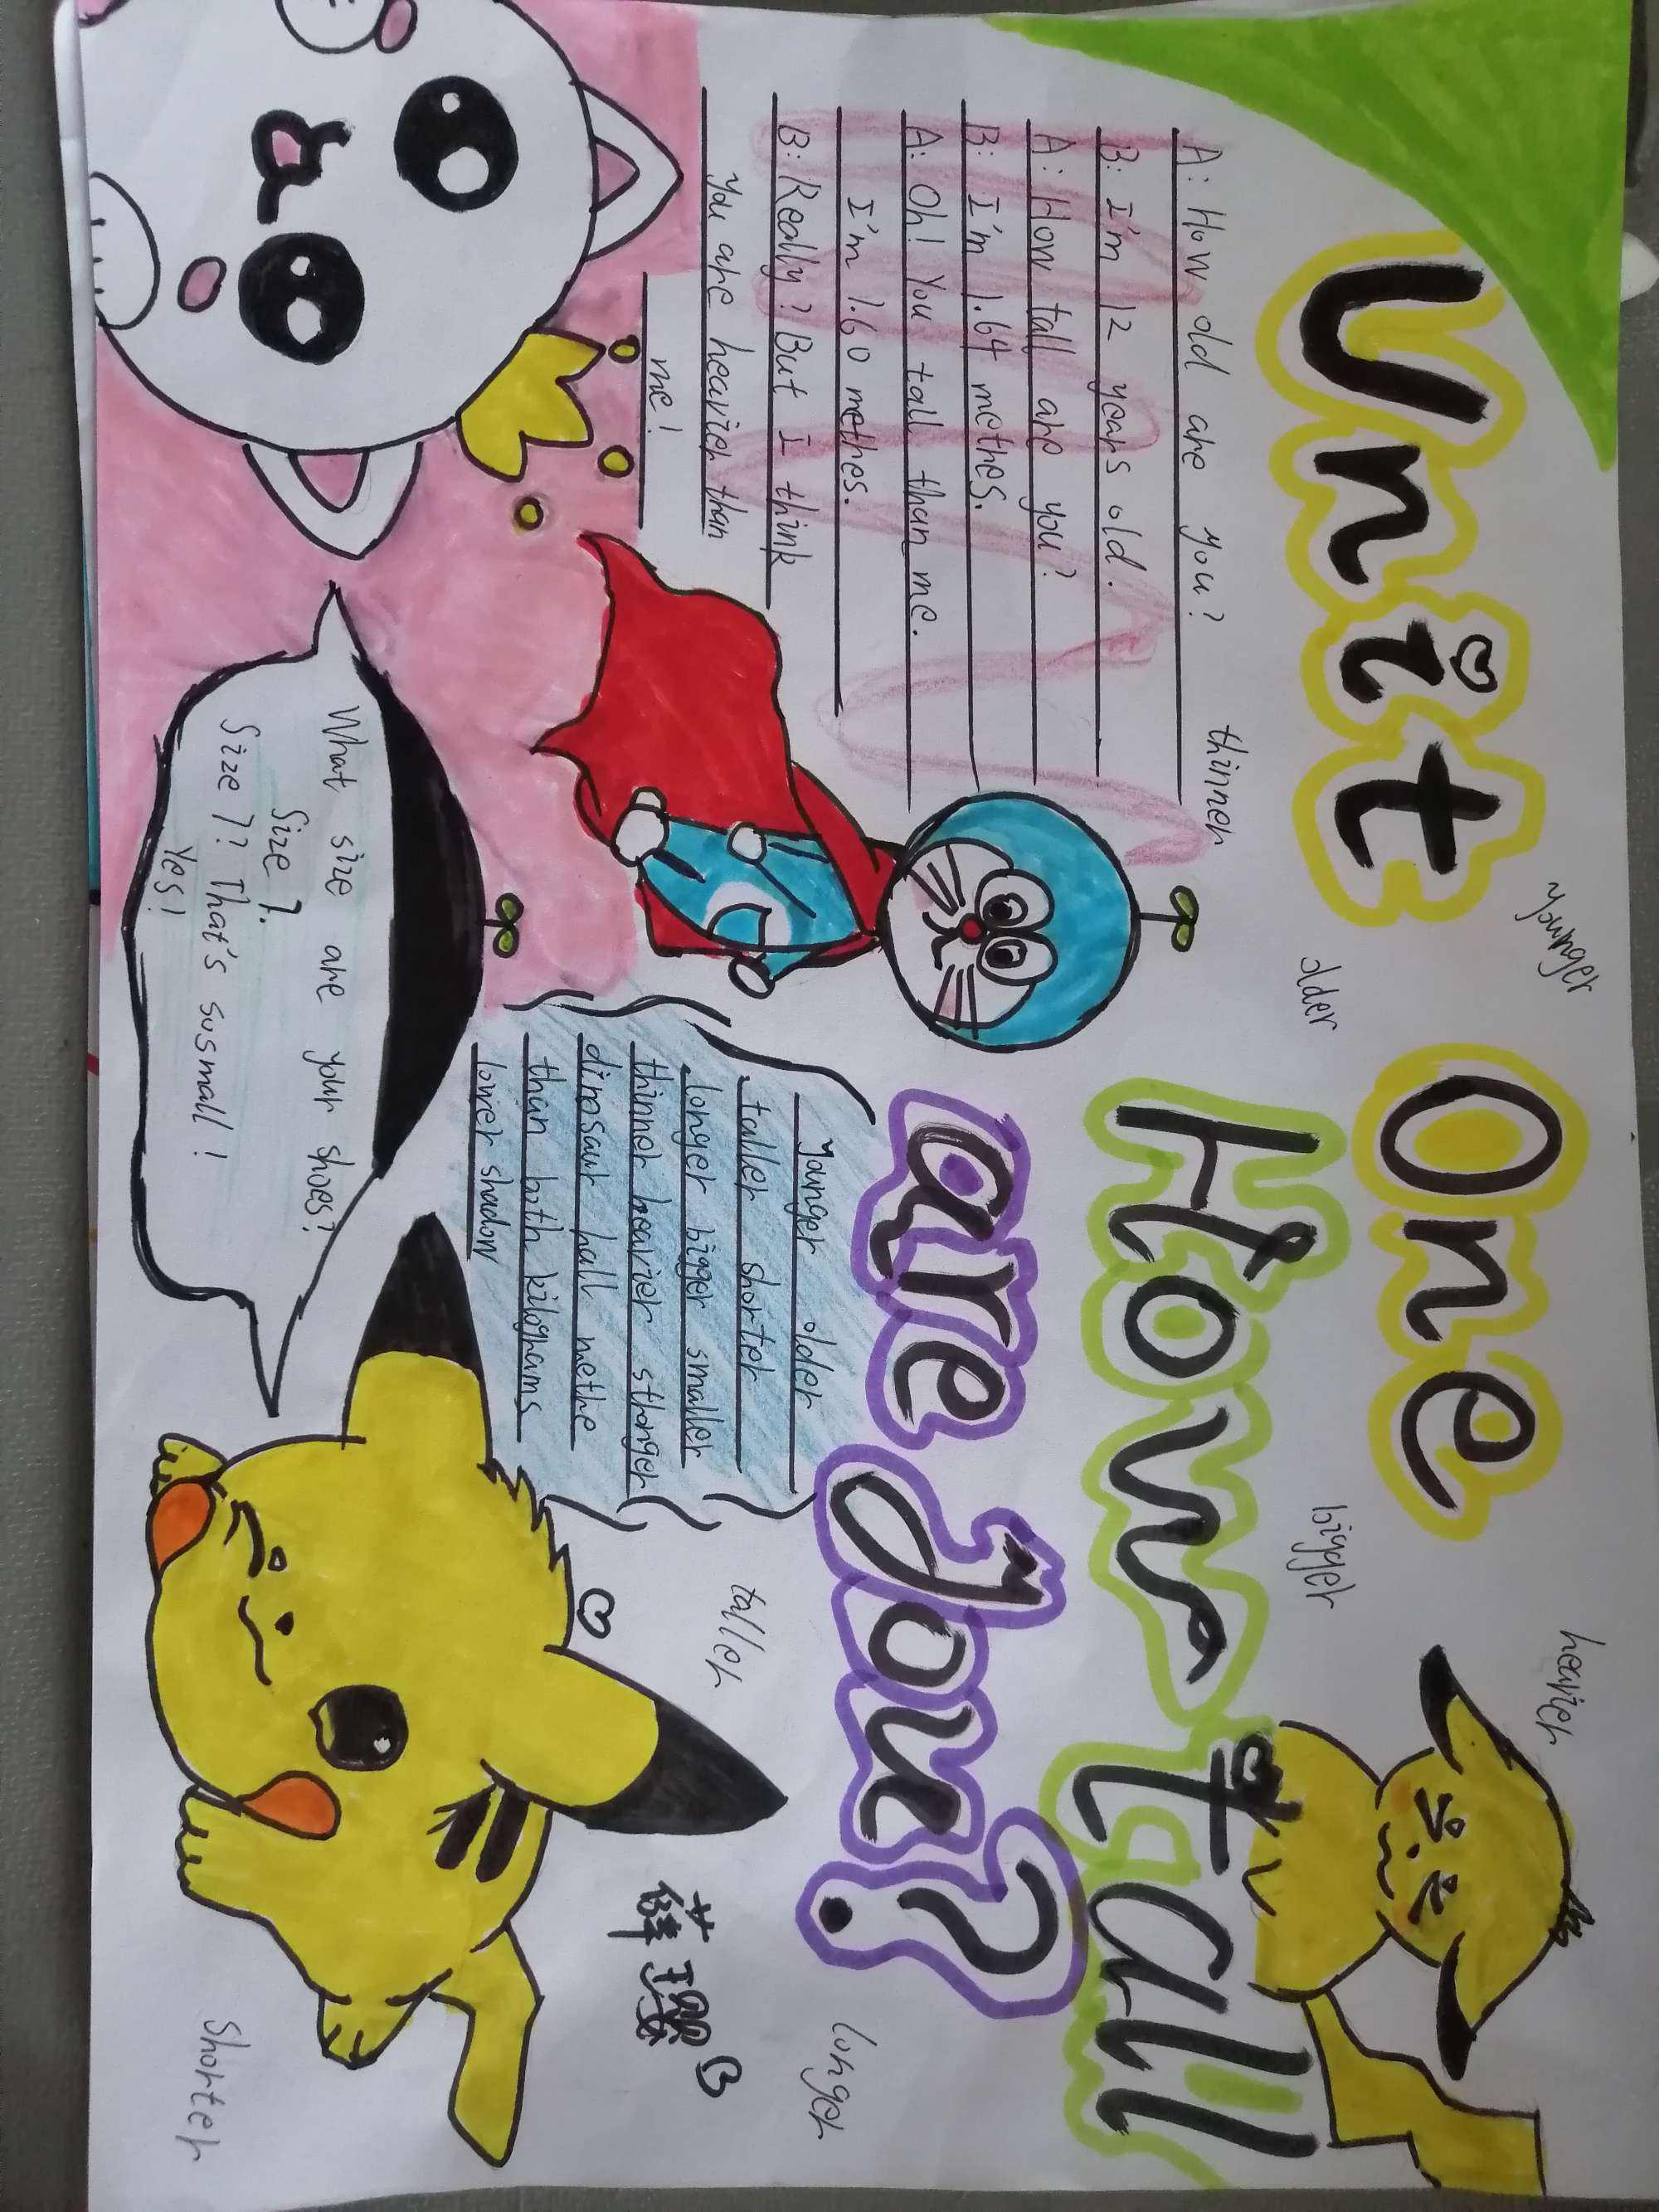 Unit One
How tall
are you?
younger
older
thinner
bigger
heavier
A: How old are you?
B: I'm 12 years old.
A: How tall are you?
B: I'm 1.64 metres.
A: Oh! You tall than me.
I'm 1.60 metres.
B: Really? But I think
you are heavier than
me!
younger older
taller shorter
longer bigger smaller
thinner heavier stronger
dinosaur hall metre
than both kilograms
lower shadow
taller
longer
What size are your shoes?
Size 7.
Size 7! That's susmall!
Yes!
shorter